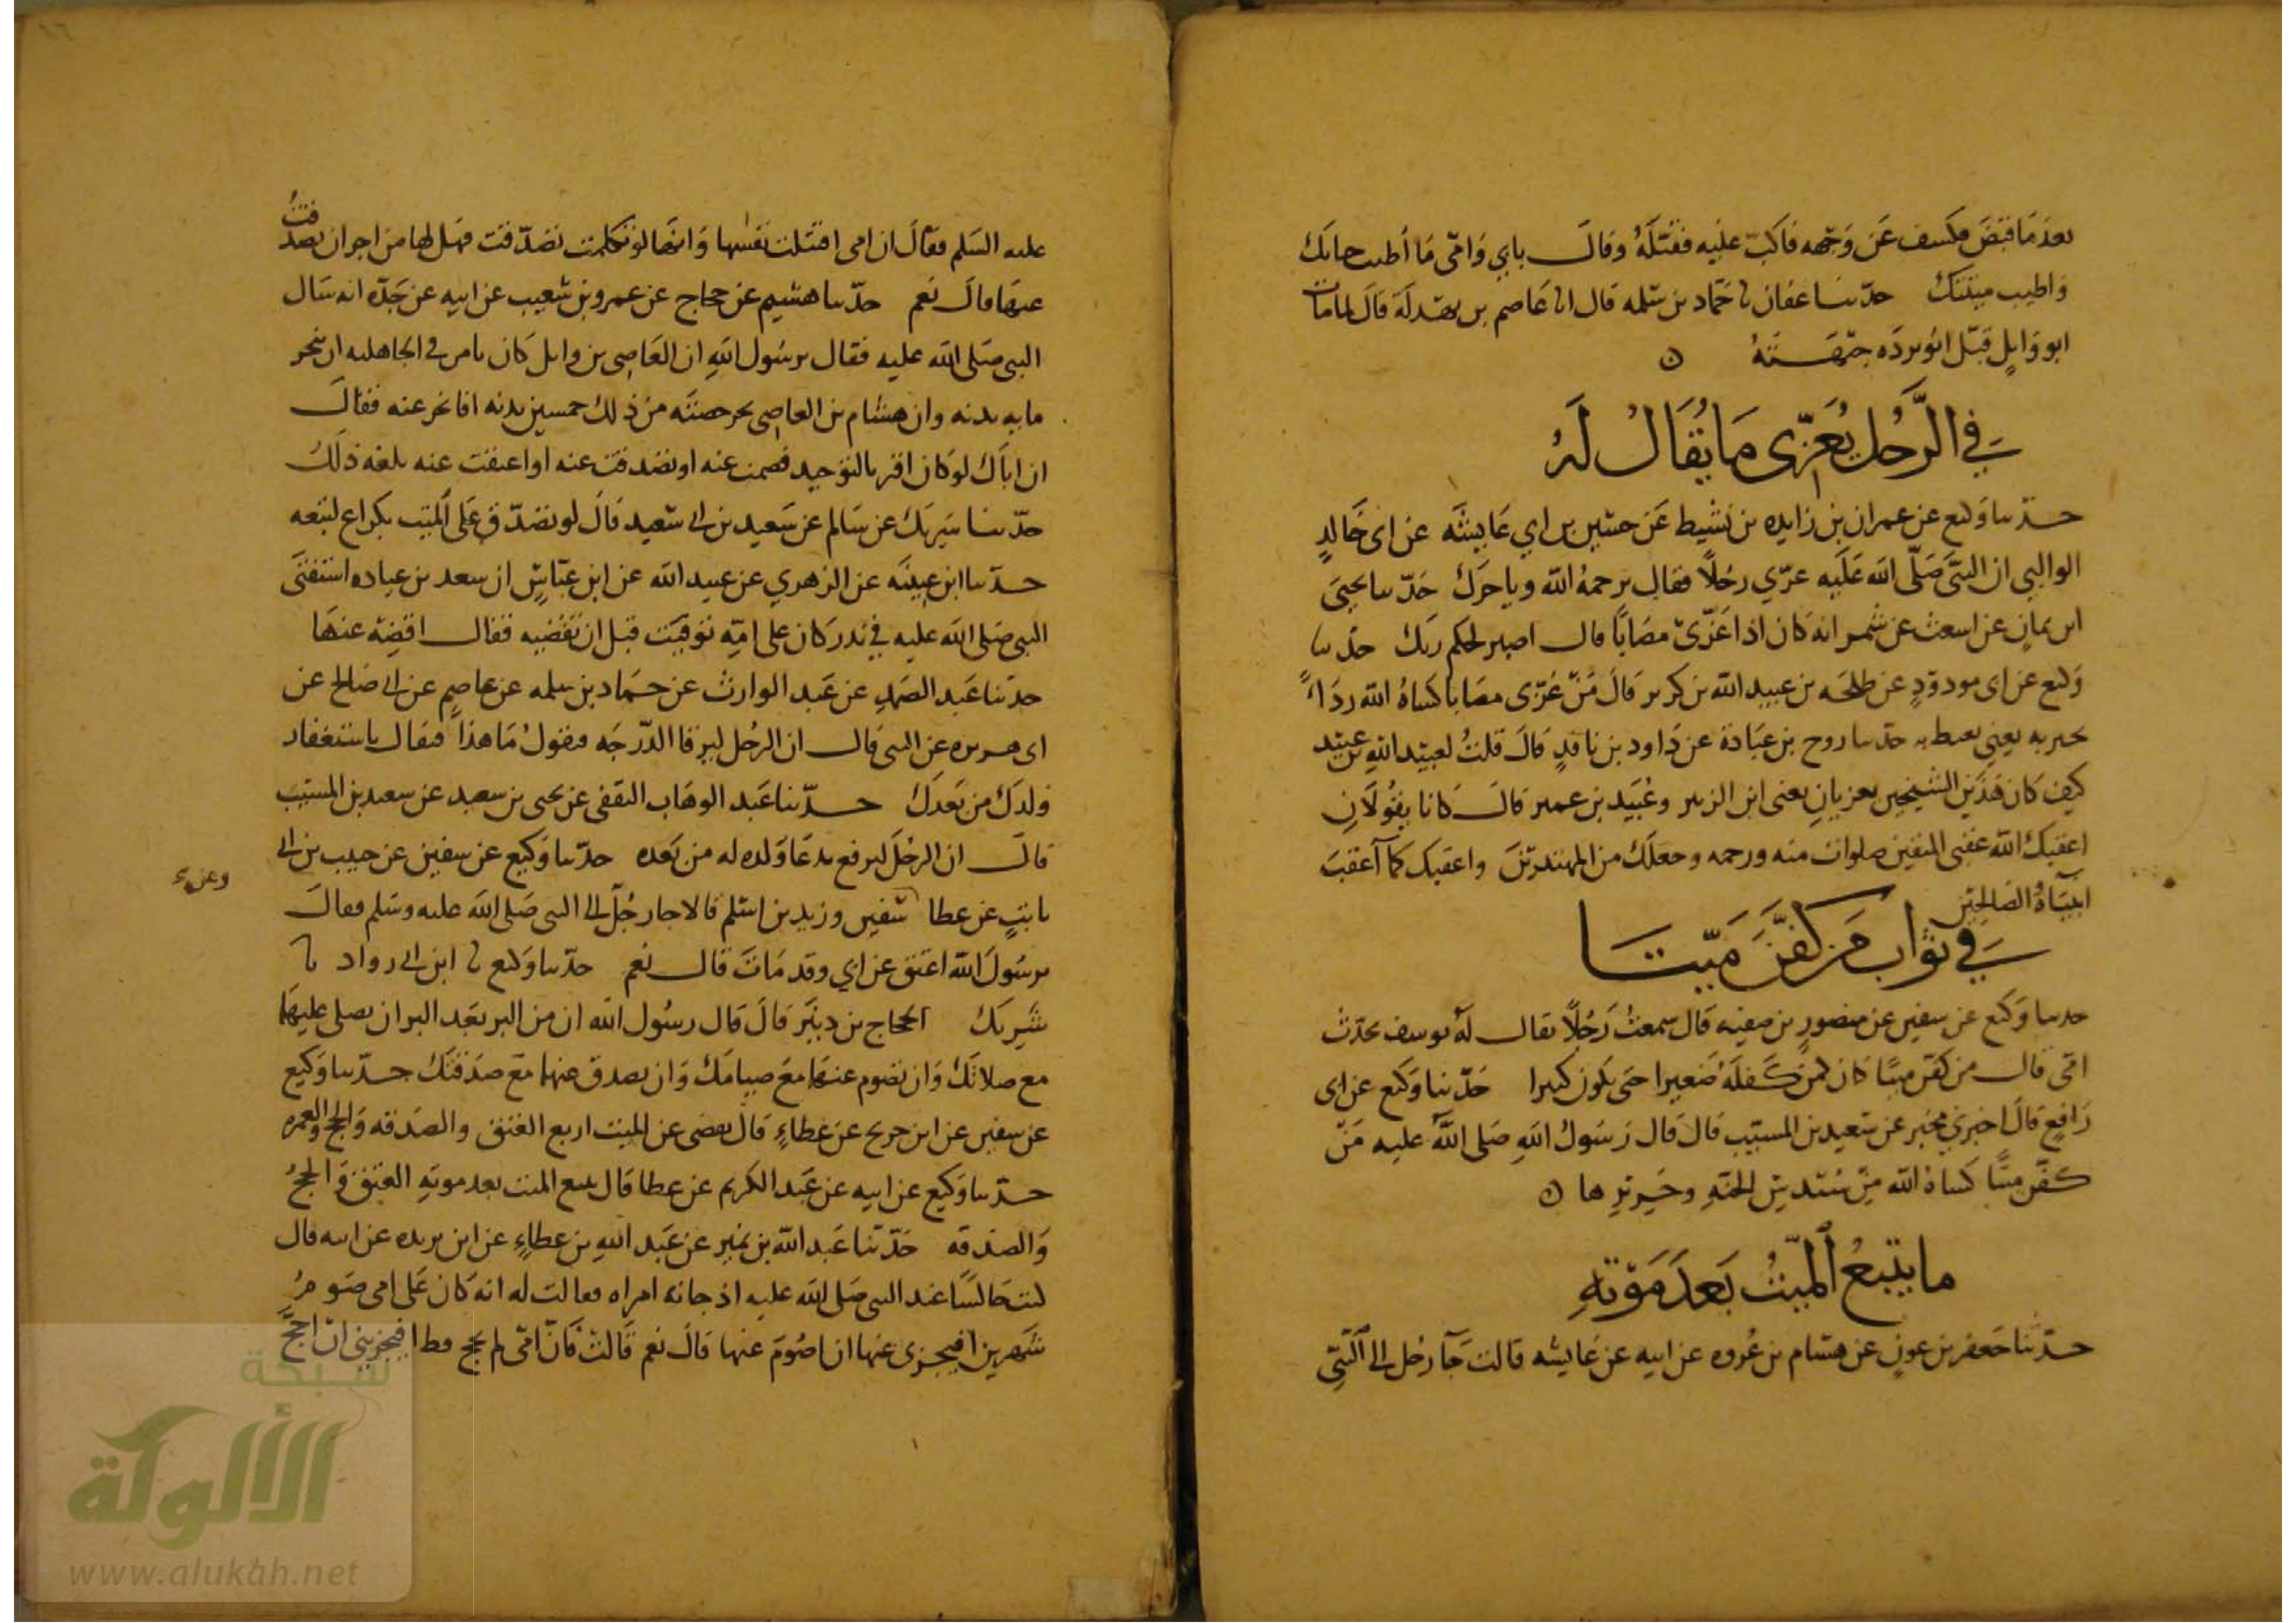 بعد ما قبض فكسف عن وجهه فاكب عليه فقبّله وقال بابي وامّي ما أطيب حياتك
واطيب ميتتك حدّثنا عفان نا حمّاد بن سلمه قال انا عاصم بن بهدلة قال لما مات
ابو وايل قبّل ابو بردة جبهته ن
في الرّجل يُعَزّى ما يُقَالُ لَهُ
حدّثنا وكيع عن عمران بن زايده بن نشيط عن حسين بن ابي عايشه عن ابى خالدٍ
الوالبي ان النبي صَلّى الله عَلَيه عزّي رجلاً فقال يرحمهُ الله وياجرك حدّثنا يحيى
ابن يمانٍ عن اسعث عن شمر انه كان اذا عَزّى مصَاباً قال اصبر لحكم ربك حدّثنا
وكيع عن ابى مودودٍ عن طلحَه بن عبيد الله بن كريز قالَ مَنْ عَزّى مصَابا كساهُ الله رِدَاءً
يحبر به يعني يغبط به حدّثنا روح بن عبَادة عن دَاود بن نافدٍ قالَ قلتُ لعبيد اللهِ بن عبيد
كيف كان هَذَين الشيخين يعزيانِ يعنى ابن الزبير وعُبَيد بن عمير قالَ كانا يقُولَانِ
اعقبك الله عقبى المتقين صلوات منه ورحمه وجعلَك من المهتدين واعقبك كما اعقبَ
انبيَاهُ الصَالحِين
في ثواب مَن كفَّنَ ميّتا
حدثنا وكيع عن سفين عن منصورِ بن صفيه قال سمعتُ رَجُلاً يقال له يوسف يحدّث
امّي قال من كفّن ميتًا كان كمن كَفلَهُ صَغيرا حتى يكون كبيرا حَدّثنا وَكيع عن ابى
رَافعٍ قالَ اخبرني مخبر عن سَعيد بن المسيّب قالَ قال رَسُولُ اللهِ صَلى اللهُ عليه مَنْ
كفّن ميتًا كساهُ الله مِن سُندسِ الجنهِ وحَريرِها ن
ما يتبعُ الميّتُ بَعدَ مَوْتهِ
حدّثنا جَعفر بن عونٍ عن هشام بن عُروه عن ابيه عن عَايشه قالت جَآ رجُل الى النبِّي
عليه السَلم فقالَ ان امى افتتلت نفسَها وَانهَا لو تكلمت تصَدّقت فهَل لها من اجر ان تصدّقتُ
عنهَا قالَ نعم حدّثنا هشيم عن حجاج عن عمرو بن شعيب عن ابيه عن جَدّه انه سَال
النبى صَلى الله عليه فقال يرسُول اللهِ ان العَاصِى بن وايل كان يامر فى الجاهليه ان ينحر
مايه بدنه وان هشام بن العاصِى نحر حصته من ذلك خمسين بدنه افانحر عنه فقالَ
ان اباكَ لو كان اقر بالتوحيد فصمت عنه او تصَدقت عنه او اعتقت عنه بلغه ذلك
حدّثنا شريك عن سَالم عن سَعيد بن ابى سَعيد قالَ لو تصَدّق عَلى الميّت بكراع لتبعه
حدّثنا ابن عيينَه عن الزهري عن عبيد الله عن ابن عبّاسٍ ان سعد بن عباده استفتَى
النبى صَلى الله عليه في ندر كان على امّه توفيَت قبل ان تقضيه فقالَ اقضه عنهَا
حدّثنا عَبد الصَمدِ عن عَبد الوارث عن حمّاد بن سلمه عن عاصمٍ عن ابى صَالح عن
ابى هريره عن النبى قالَ ان الرجُل ليرقا الدّرجَه فيقولُ مَا هذا فيقال باستغفار
ولدَك من بَعدَك حدّثنا عَبد الوهاب الثقفى عن يحيى بن سعيد عن سعيد بن المسيّب
قالَ ان الرجُلَ ليرفع بدعَا وَلده له من بَعده حدّثنا وَكيع عن سفين عن حبيب بن ابى
ثابتٍ عن عطا سَفين وزيد بن اسْلم قالا جا رجُلٌ الى النبى صَلى الله عليه وسَلم فقالَ
وعن
يرسُولَ الله اعتق عن ابي وقد مَاتَ قالَ نعم حدّثنا وَكيع نا ابن ابى رواد نا
شَريك الحجاج بن دينَرَ قالَ قال رسُول الله ان من البر بَعد البر ان يصلى عليهَما
مع صلاتكَ وَان تصُوم عنهَما معَ صيامَك وَان يصدق عنهما مَع صَدقتك حدّثنا وَكيع
عن سفين عن ابن جريج عن عطاءٍ قالَ يقضى عن الميت اربع العتق والصَدقه وَالحج والعمره
حدّثنا وَكيع عن ابيه عن عَبد الكريم عن عطا قال يتبع الميت بعد موتهِ العتق وَالحجُ
وَالصَدقه حَدّثنا عَبد الله بن نميرٍ عن عَبد اللهِ بن عطاءٍ عن ابن بريده عن ابيه قال
كنت جَالسًا عند النبى صَلى الله عليه اذ جاته امراه فقالت له انه كان عَلى امى صَومُ
شَهرين افيجزى عنها ان اصُومَ عنها قالَ نعم قالتْ فانّ امّى لم يحج قط افيجزينى ان احجّ
شبكة
الألوكة
www.alukah.net